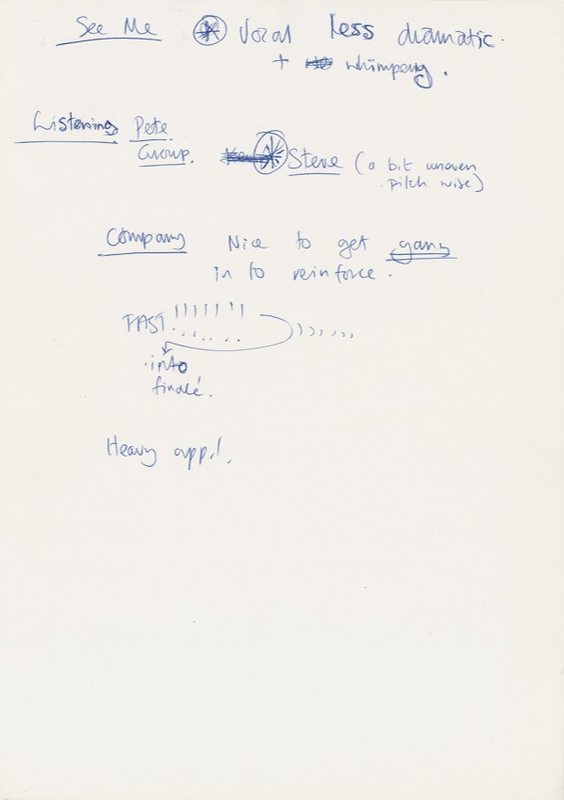 See Me Vocal Less dramatic.
+ whimpering.
Listening Pete
Group. Steve (a bit uneven
pitch wise)
Company Nice to get gang
in to reinforce.
FAST !!!!!!! )))))...
into
finalé.
Heavy app!.